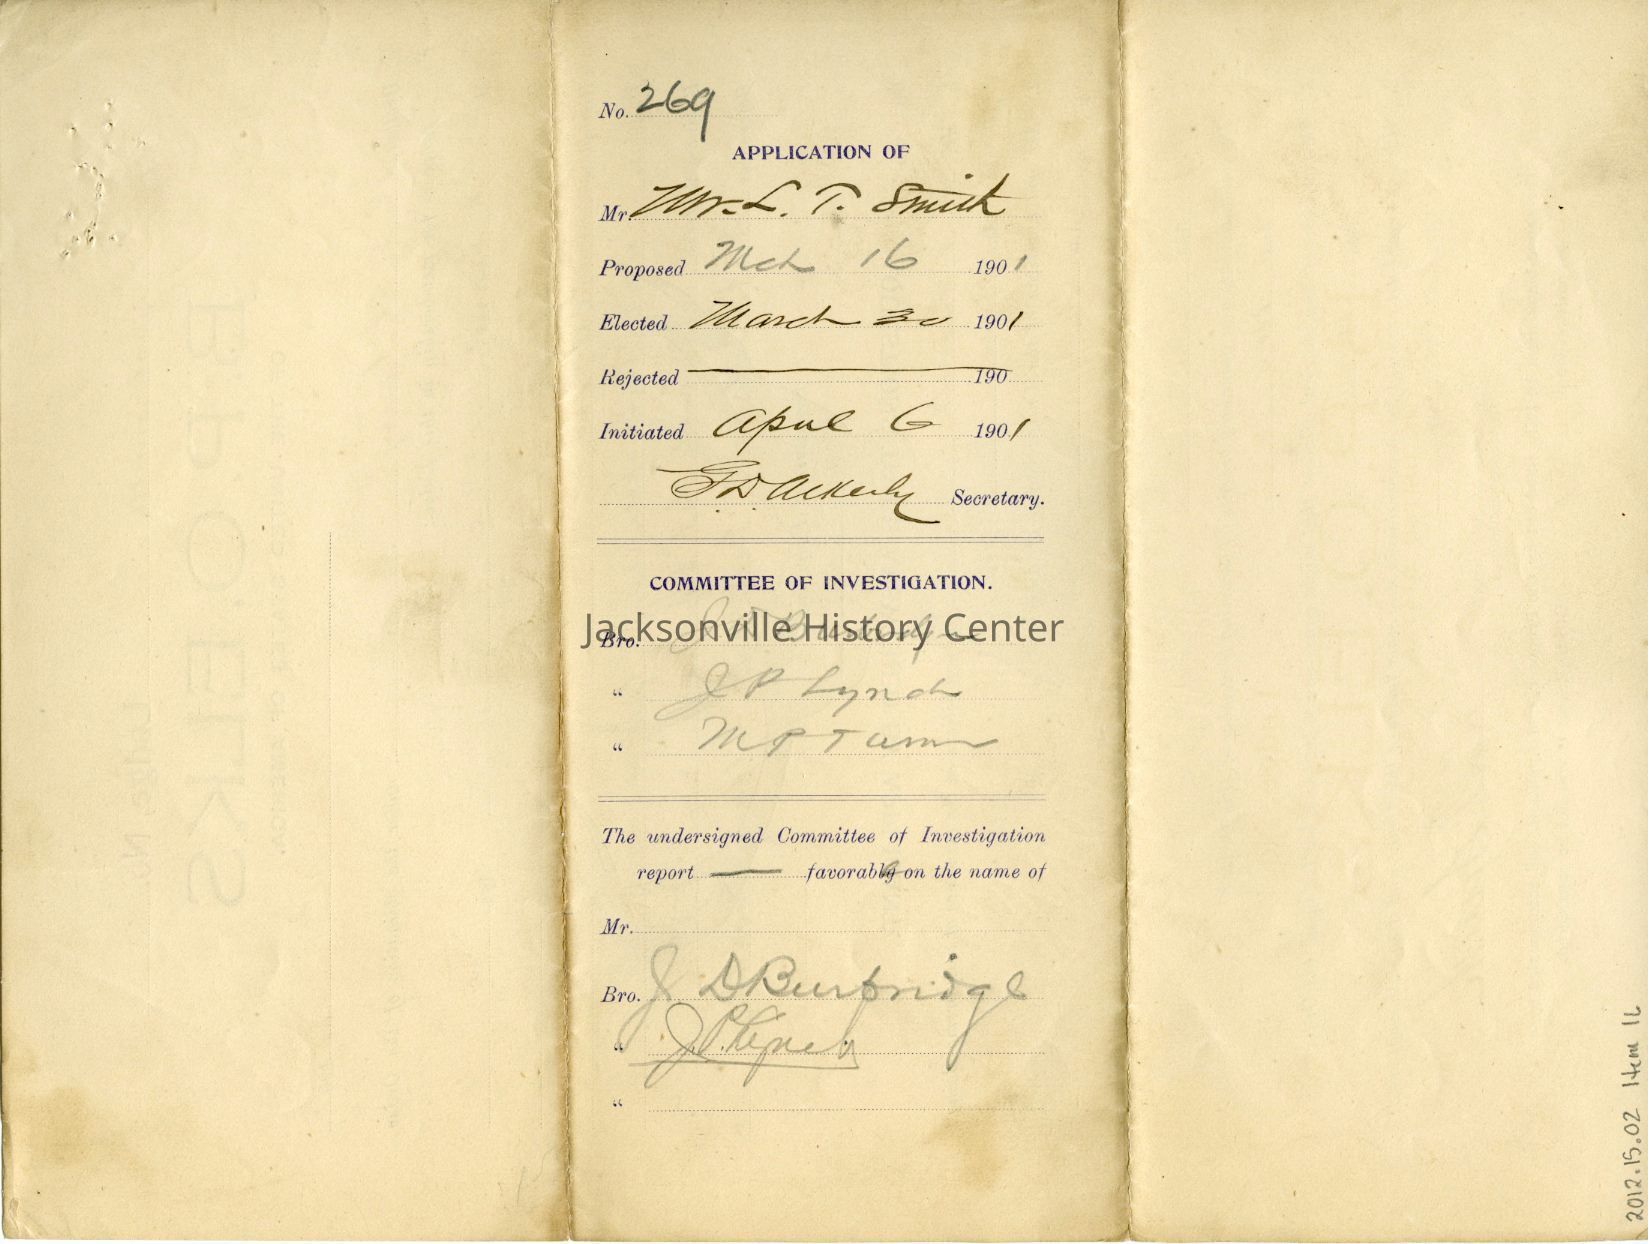 No. 269
APPLICATION OF
Mr. Mr. L. T. Smith
Proposed Mch 16 1901
Elected March 30 1901
Rejected 190
Initiated April 6 1901
G D Ackerly Secretary.
COMMITTEE OF INVESTIGATION.
Jacksonville History Center
Bro. J D Burbridge
" J P Lynch
" M P Turner
The undersigned Committee of Investigation
report favorably on the name of
Mr.
Bro. J D Burbridge
" J P Lynch
"
2012.15.02 Item 16